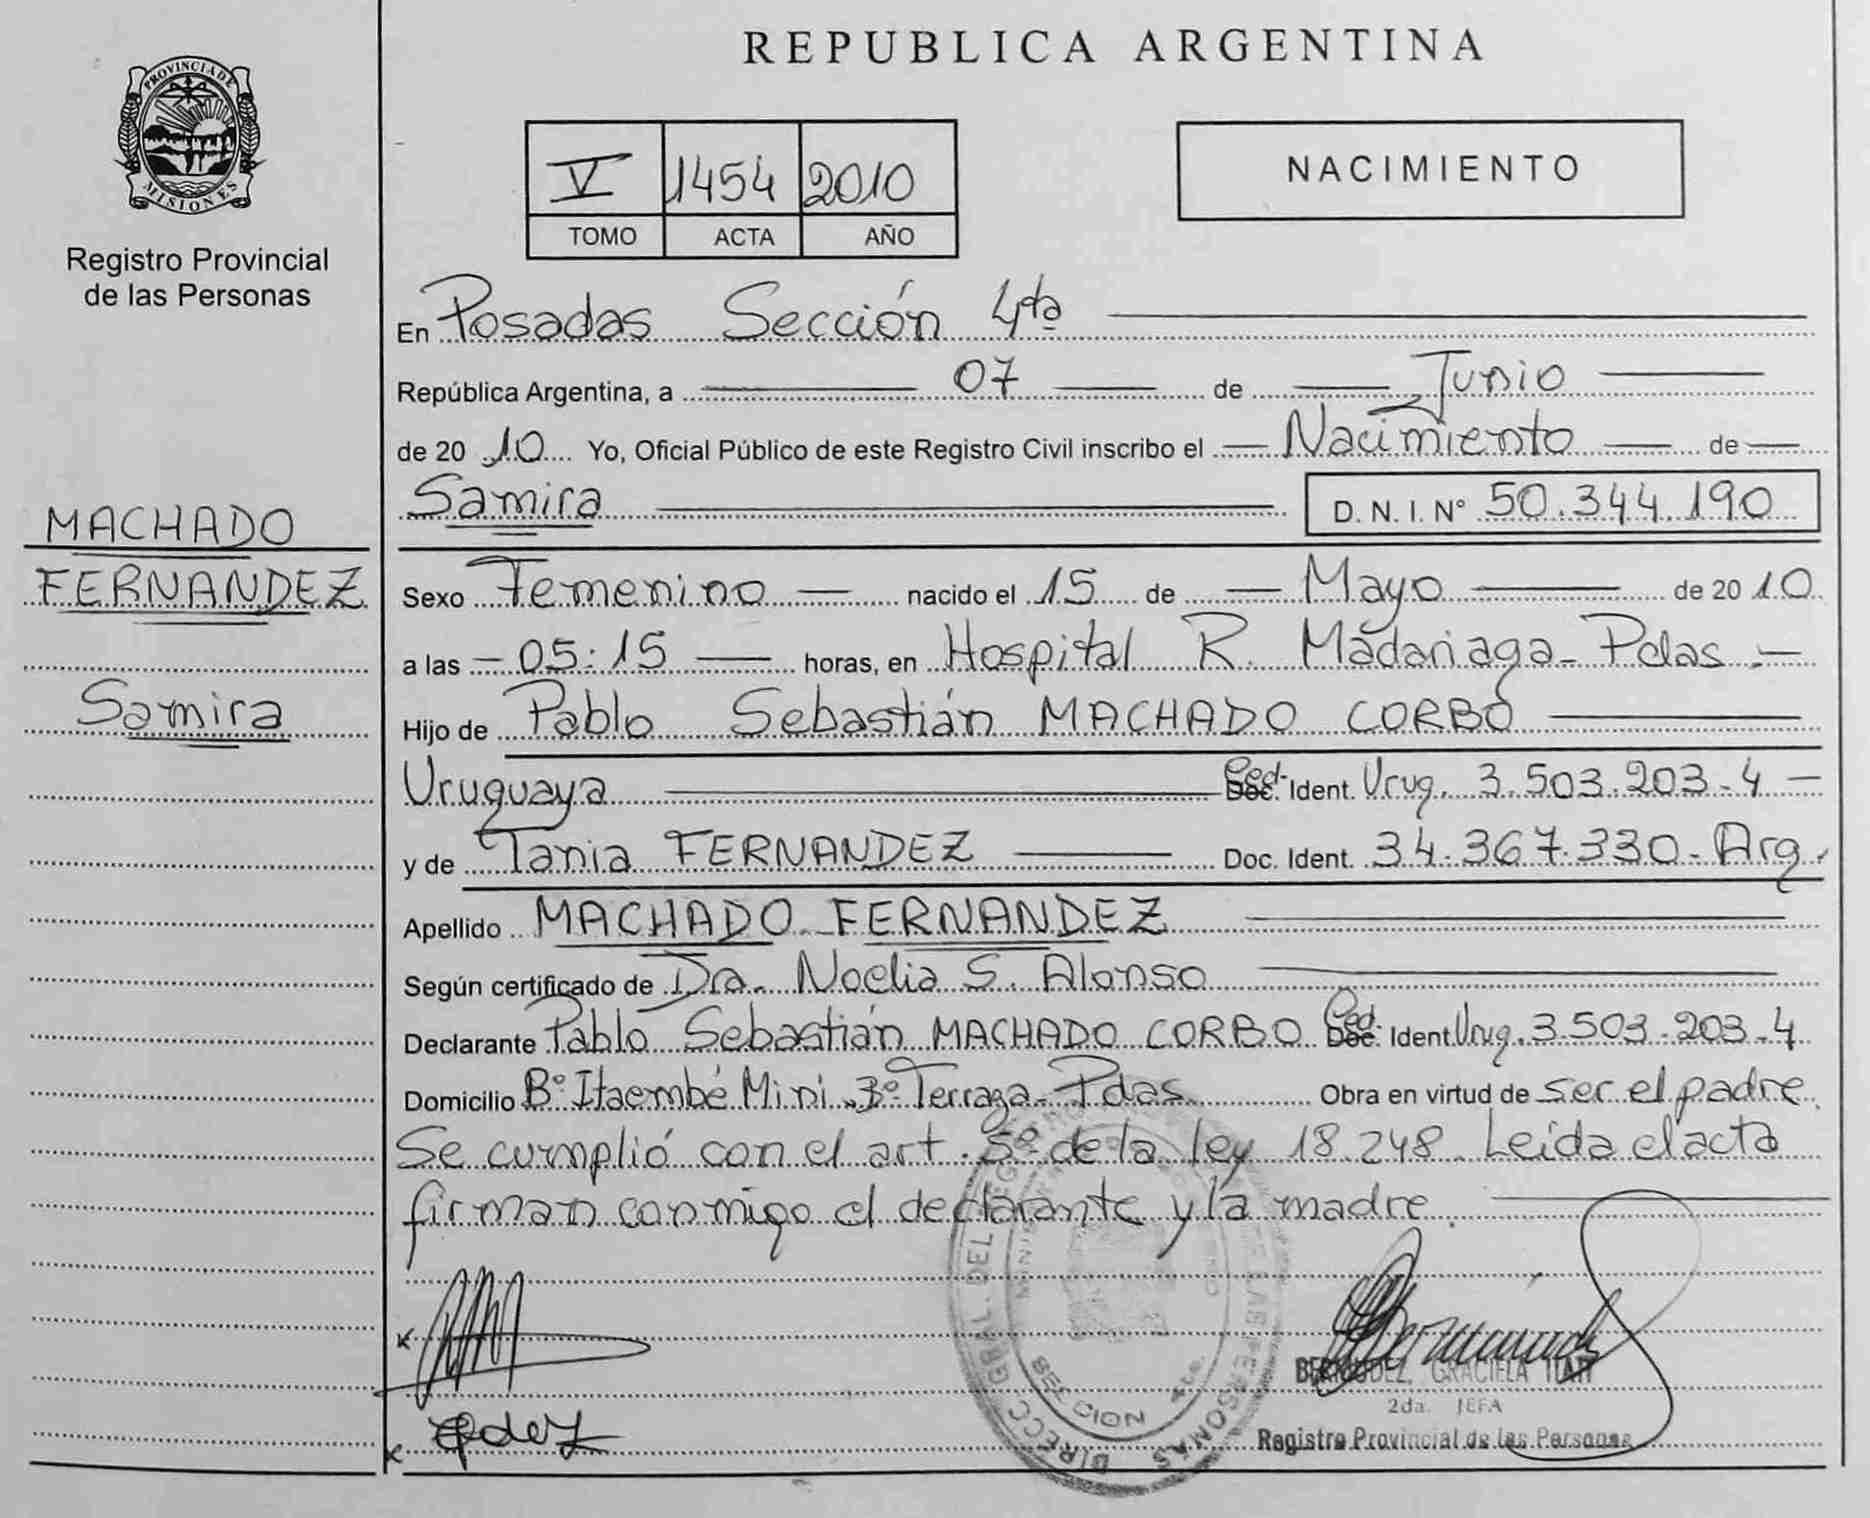 REPUBLICA ARGENTINA
PROVINCIA DE MISIONES
Registro Provincial
de las Personas
V 1454 2010
TOMO ACTA AÑO
NACIMIENTO
En Posadas Sección 4ta
República Argentina, a 07 de Junio
de 2010 Yo, Oficial Público de este Registro Civil inscribo el Nacimiento de
Samira D. N. I. Nº 50.344.190
MACHADO
FERNANDEZ
Samira
Sexo Femenino nacido el 15 de Mayo de 2010
a las 05:15 horas, en Hospital R. Madariaga - Pdas.-
Hijo de Pablo Sebastián MACHADO CORBO
Uruguaya Ced. Ident. Urug. 3.503.203-4
y de Tania FERNANDEZ Doc. Ident. 34.367.330 - Arg.
Apellido MACHADO FERNANDEZ
Según certificado de Dra. Noelia S. Alonso
Declarante Pablo Sebastián MACHADO CORBO Ced. Ident. Urug. 3.503.203-4
Domicilio Bº Itaembé Mini 3º Terraza - Pdas Obra en virtud de ser el padre.
Se cumplió con el art. 5º de la ley 18.248. Leída el acta
firman conmigo el declarante y la madre.
BERMUDEZ, GRACIELA ITATI
2da. JEFA
Registro Provincial de las Personas
SECCION 4ta.